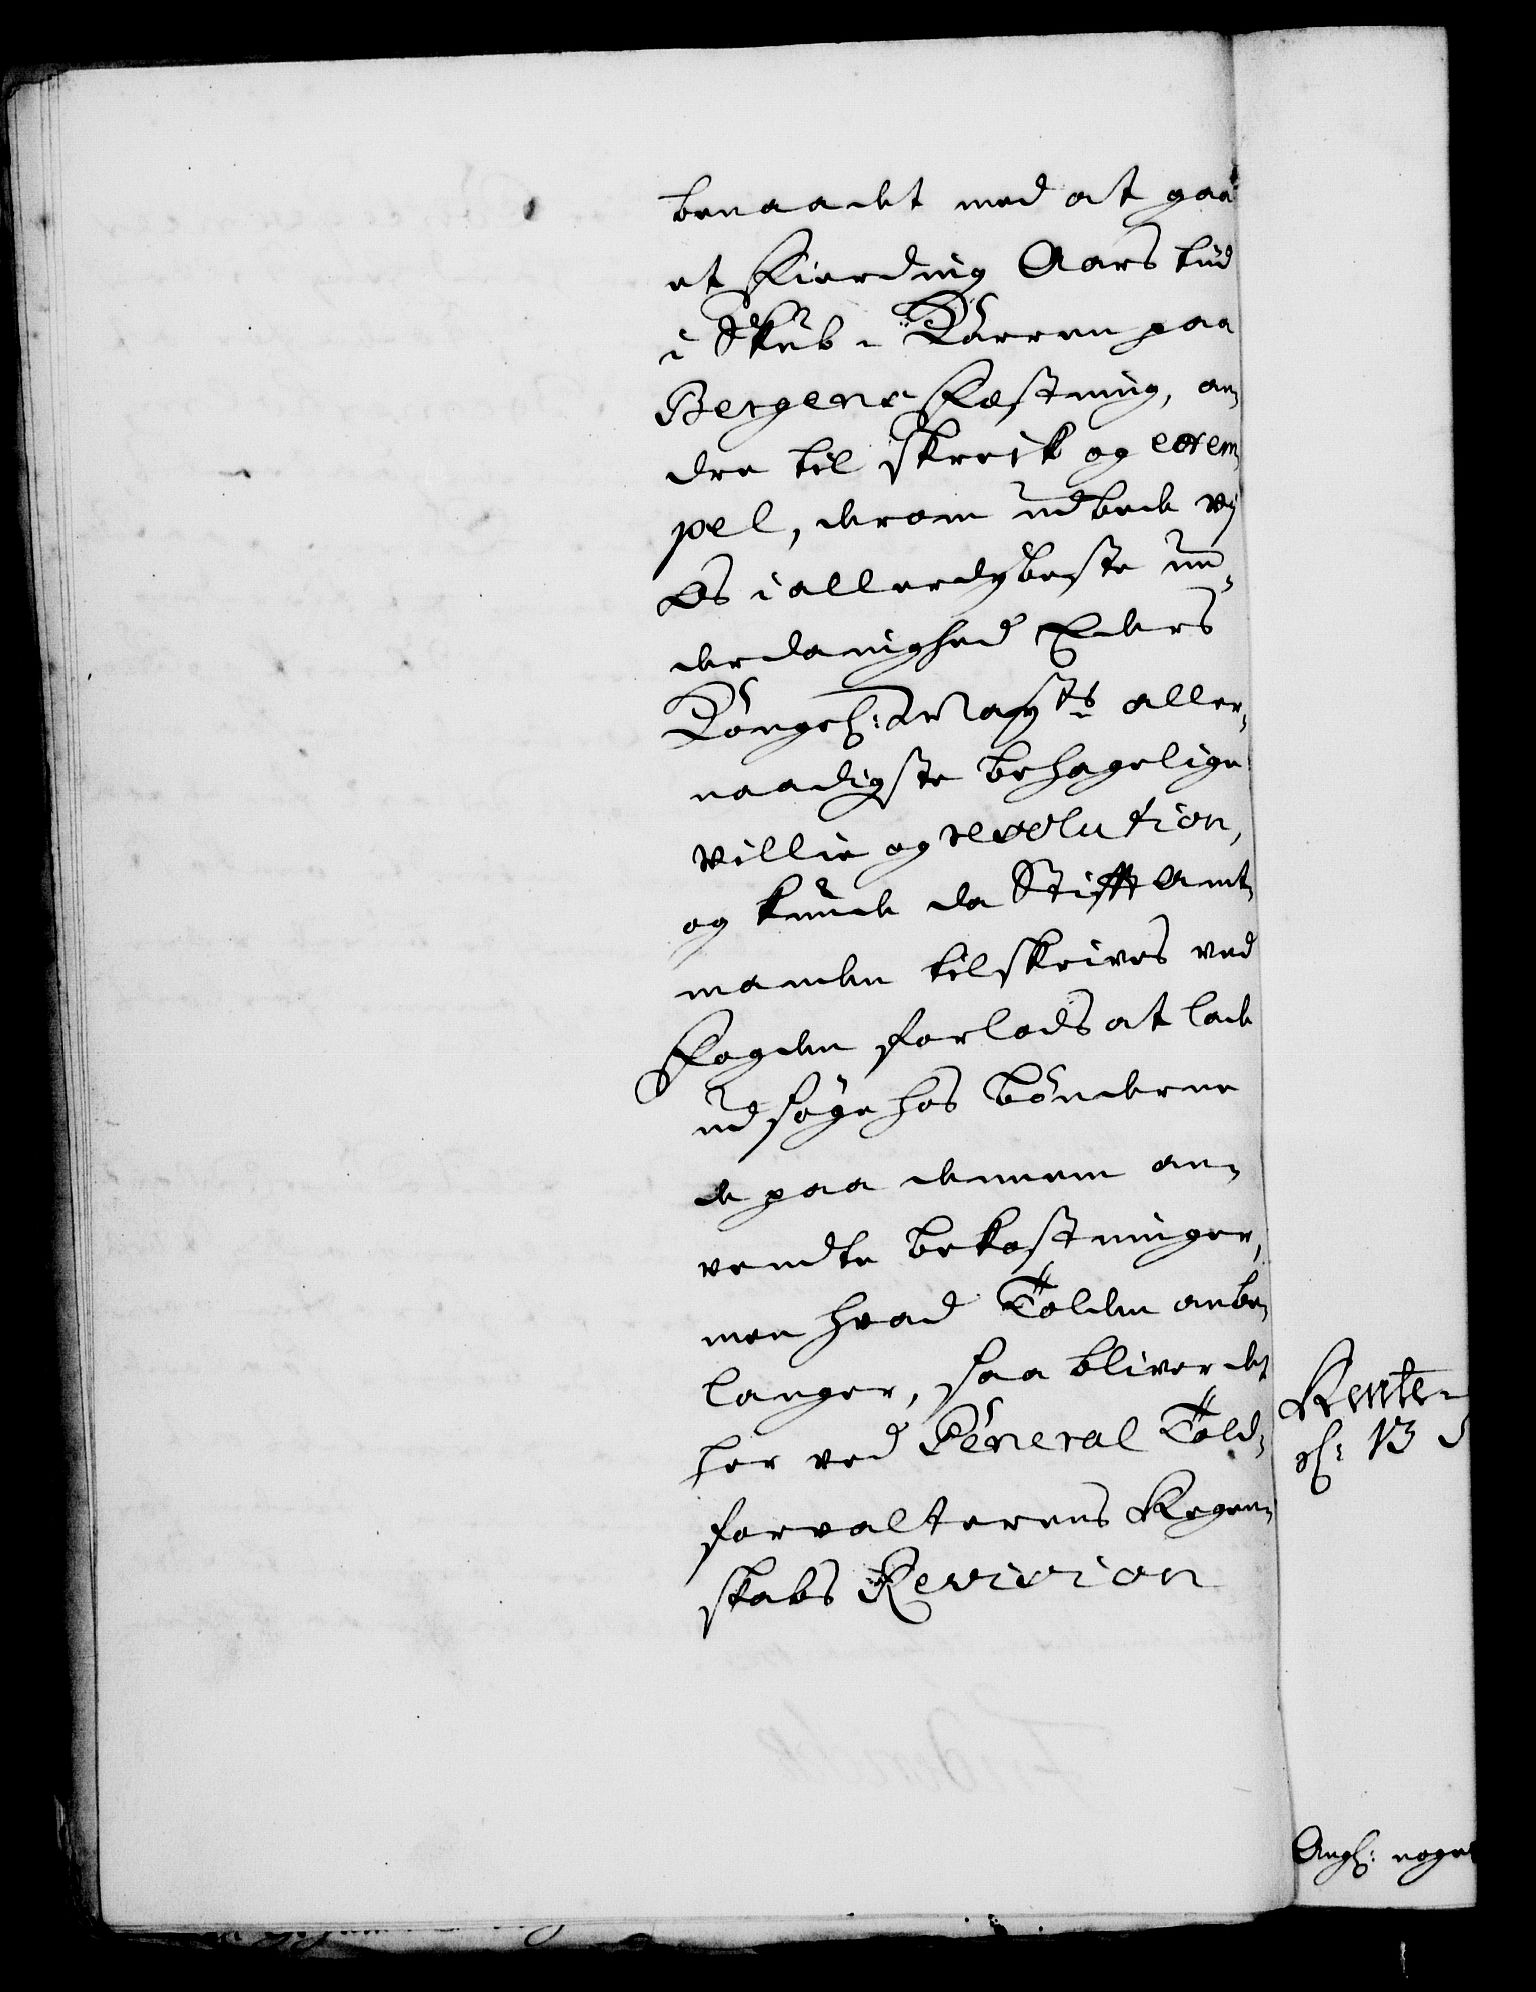 benaadet med at gaa
et Fierding Aars tiid
i Skub-Karren paa
Bergens Fæstning, an-
dre til skreik og exem-
pel, derom udbede vj
Os i allerdybeste un-
derdanighed Eders
Kongel: Mayts aller-
naadigste behagelige
villie og resolution,
og kunde da Stifft Amt-
manden tilskrives ved
Fogden forlods at lade
udsøge hos bønderne
de paa dennem an-
vendte bekostninger,
men hvad Tolden anbe-
langer, saa bliver det
her ved General Told-
forvalterens Regen-
skabs Revision
Rente-
13
Angl: noget